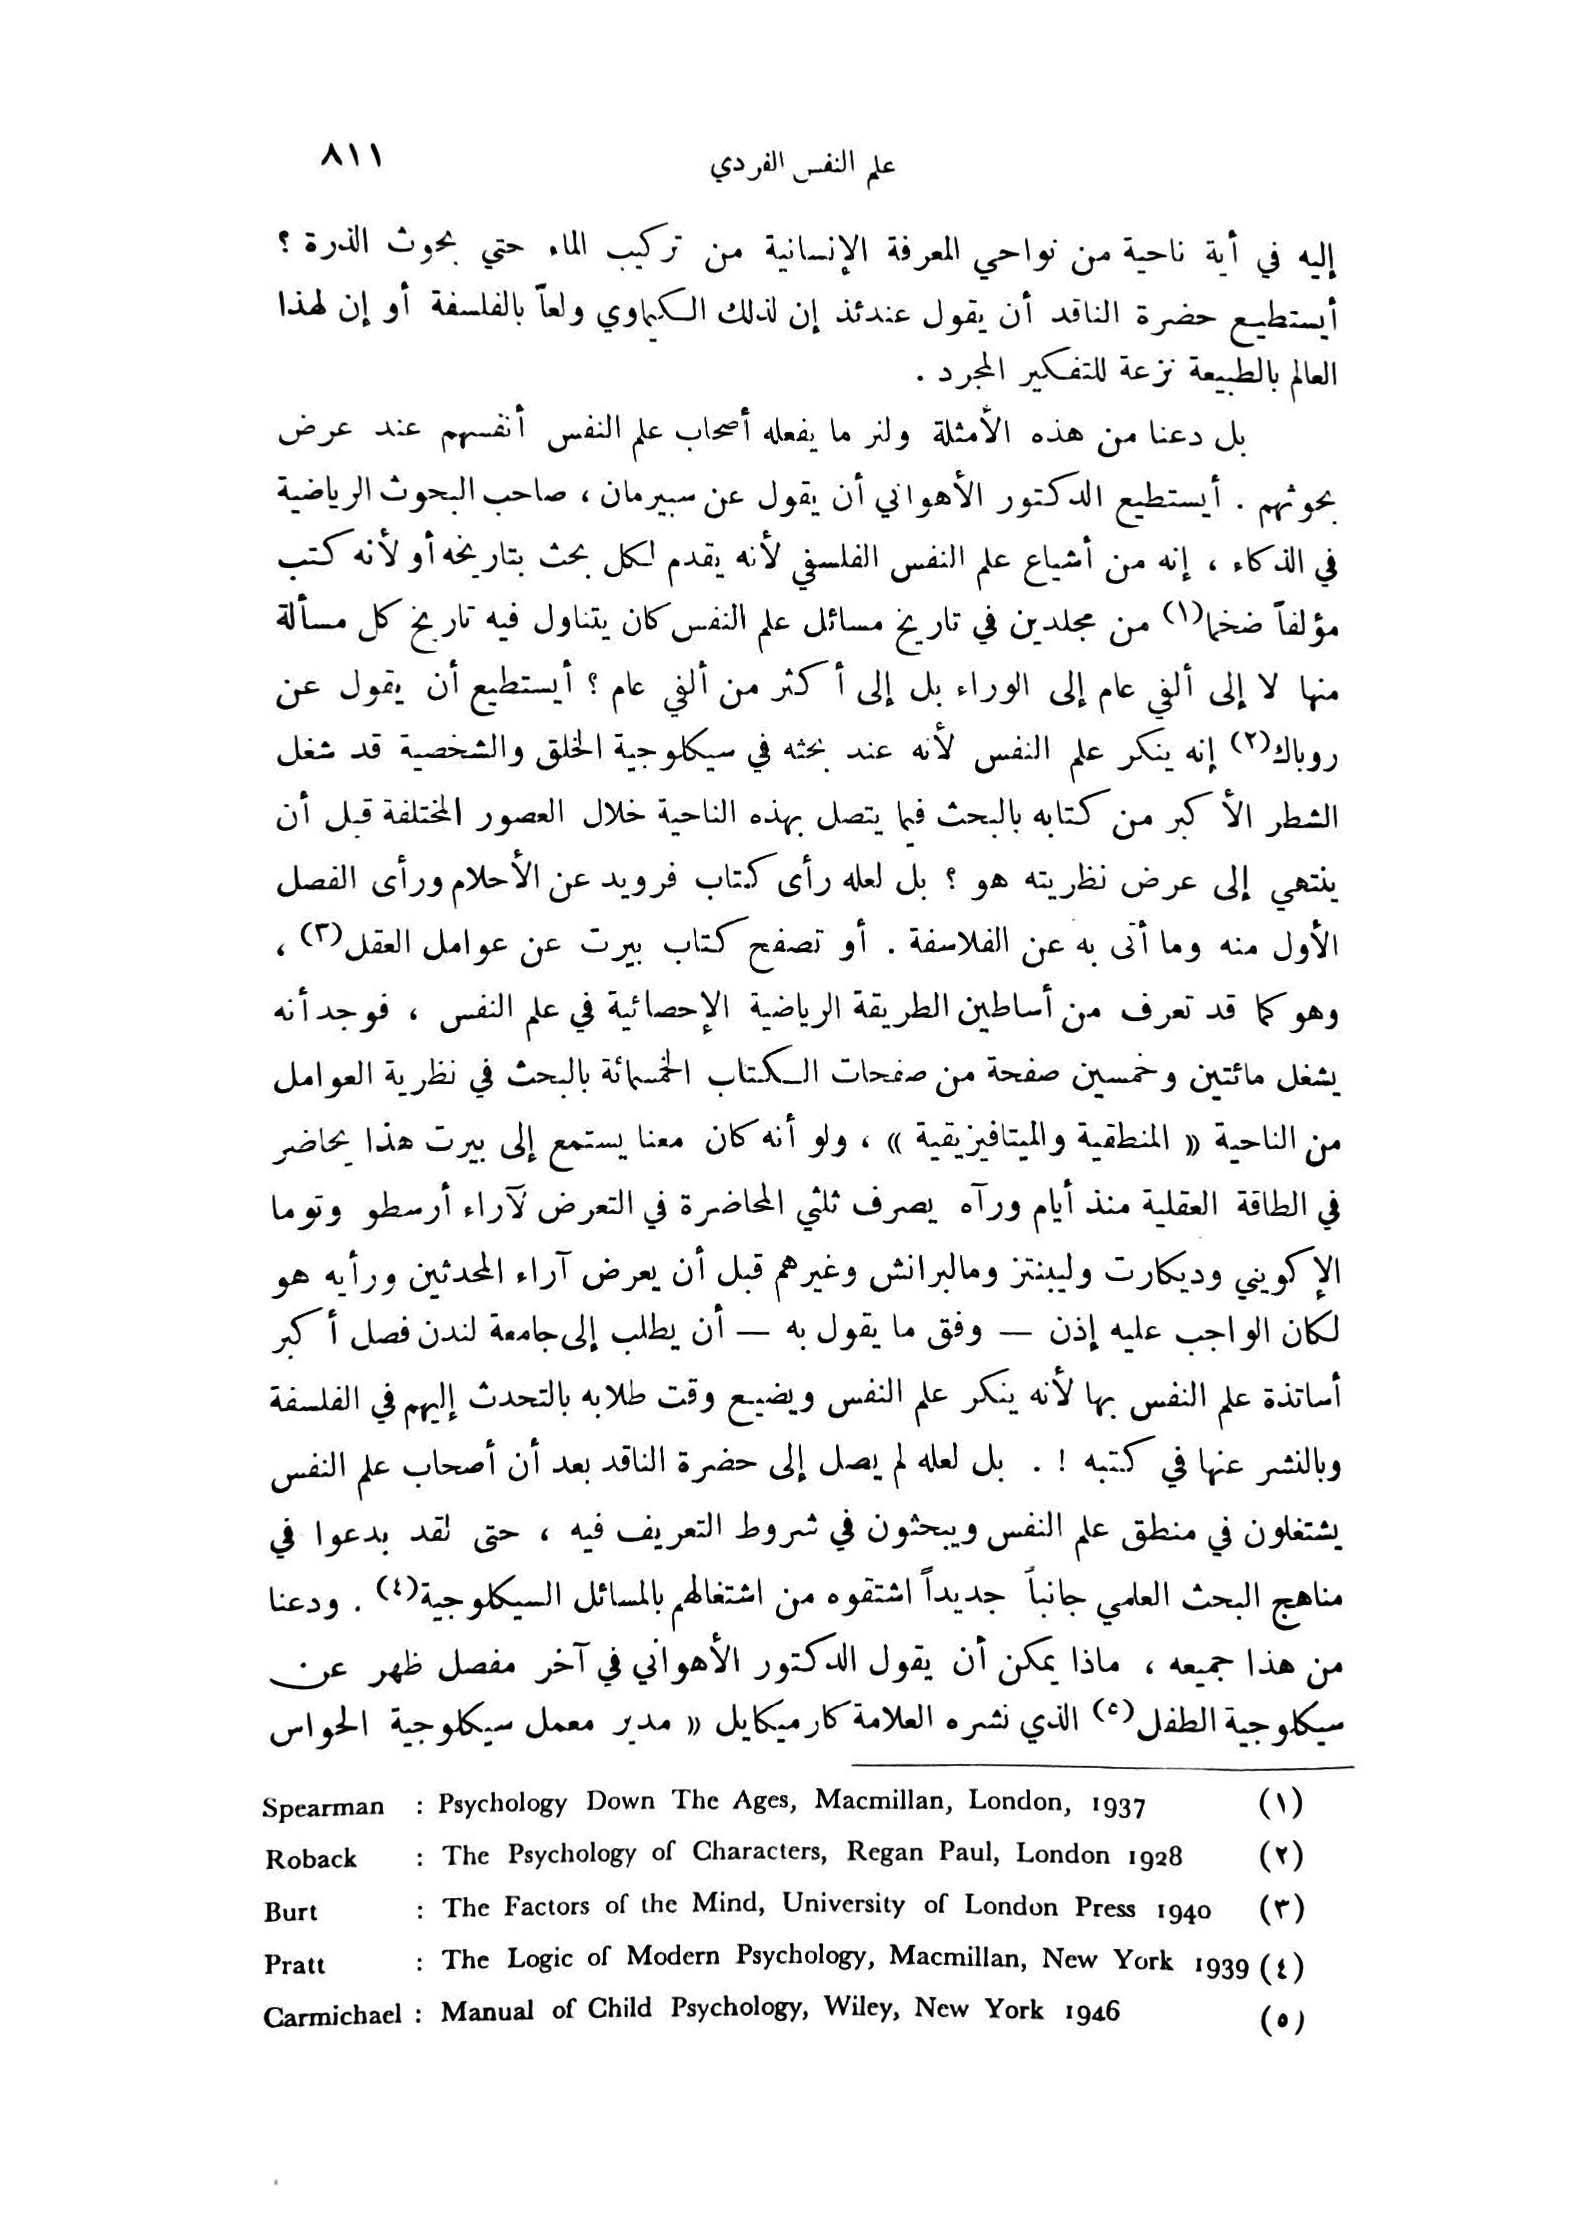 علم النفس الفردي ٨١١
إليه في أية ناحية من نواحي المعرفة الإنسانية من تركيب الماء حتي بحوث الذرة ؟
أيستطيع حضرة الناقد أن يقول عندئذ إن لذلك الكيماوي ولعاً بالفلسفة أو إن لهذا
العالم بالطبيعة نزعة للتفكير المجرد .
بل دعنا من هذه الأمثلة ولنر ما يفعله أصحاب علم النفس أنفسهم عند عرض
بحوثهم . أيستطيع الدكتور الأهواني أن يقول عن سبيرمان ، صاحب البحوث الرياضية
في الذكاء ، إنه من أشياع علم النفس الفلسفي لأنه يقدم لكل بحث بتاريخه أو لأنه كتب
مؤلفاً ضخما(١) من مجلدين في تاريخ مسائل علم النفس كان يتناول فيه تاريخ كل مسألة
منها لا إلى ألفي عام إلى الوراء بل إلى أكثر من ألفي عام ؟ أيستطيع أن يقول عن
روباك(٢) إنه ينكر علم النفس لأنه عند بحثه في سيكلوجية الخلق والشخصية قد شغل
الشطر الأكبر من كتابه بالبحث فيما يتصل بهذه الناحية خلال العصور المختلفة قبل أن
ينتهي إلى عرض نظريته هو ؟ بل لعله رأى كتاب فرويد عن الأحلام ورأى الفصل
الأول منه وما أتى به عن الفلاسفة . أو تصفح كتاب بيرت عن عوامل العقل(٣) ،
وهو كما قد تعرف من أساطين الطريقة الرياضية الإحصائية في علم النفس ، فوجد أنه
يشغل مائتين وخمسين صفحة من صفحات الكتاب الخمسمائة بالبحث في نظرية العوامل
من الناحية « المنطقية والميتافيزيقية » ، ولو أنه كان معنا يستمع إلى بيرت هذا يحاضر
في الطاقة العقلية منذ أيام ورآه يصرف ثلثي المحاضرة في التعرض لآراء أرسطو وتوما
الإكويني وديكارت وليبنتز ومالبرانش وغيرهم قبل أن يعرض آراء المحدثين ورأيه هو
لكان الواجب عليه إذن — وفق ما يقول به — أن يطلب إلى جامعة لندن فصل أكبر
أساتذة علم النفس بها لأنه ينكر علم النفس ويضيع وقت طلابه بالتحدث إليهم في الفلسفة
وبالنشر عنها في كتبه ! . بل لعله لم يصل إلى حضرة الناقد بعد أن أصحاب علم النفس
يشتغلون في منطق علم النفس ويبحثون في شروط التعريف فيه ، حتى لقد بدعوا في
مناهج البحث العلمي جانباً جديداً اشتقوه من اشتغالهم بالمسائل السيكلوجية(٤) . ودعنا
من هذا جميعه ، ماذا يمكن أن يقول الدكتور الأهواني في آخر مفصل ظهر عن
سيكلوجية الطفل(٥) الذي نشره العلامة كارميكايل « مدير معمل سيكلوجية الحواس
Spearman : Psychology Down The Ages, Macmillan, London, 1937 (١)
Roback : The Psychology of Characters, Regan Paul, London 1928 (٢)
Burt : The Factors of the Mind, University of London Press 1940 (٣)
Pratt : The Logic of Modern Psychology, Macmillan, New York 1939 (٤)
Carmichael : Manual of Child Psychology, Wiley, New York 1946 (٥)